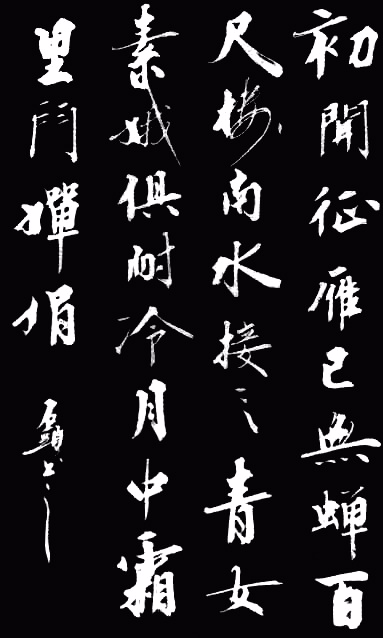 初聞征雁已無蝉百
尺楼南水接天青女
素娥俱耐冷月中霜
里鬥嬋娟